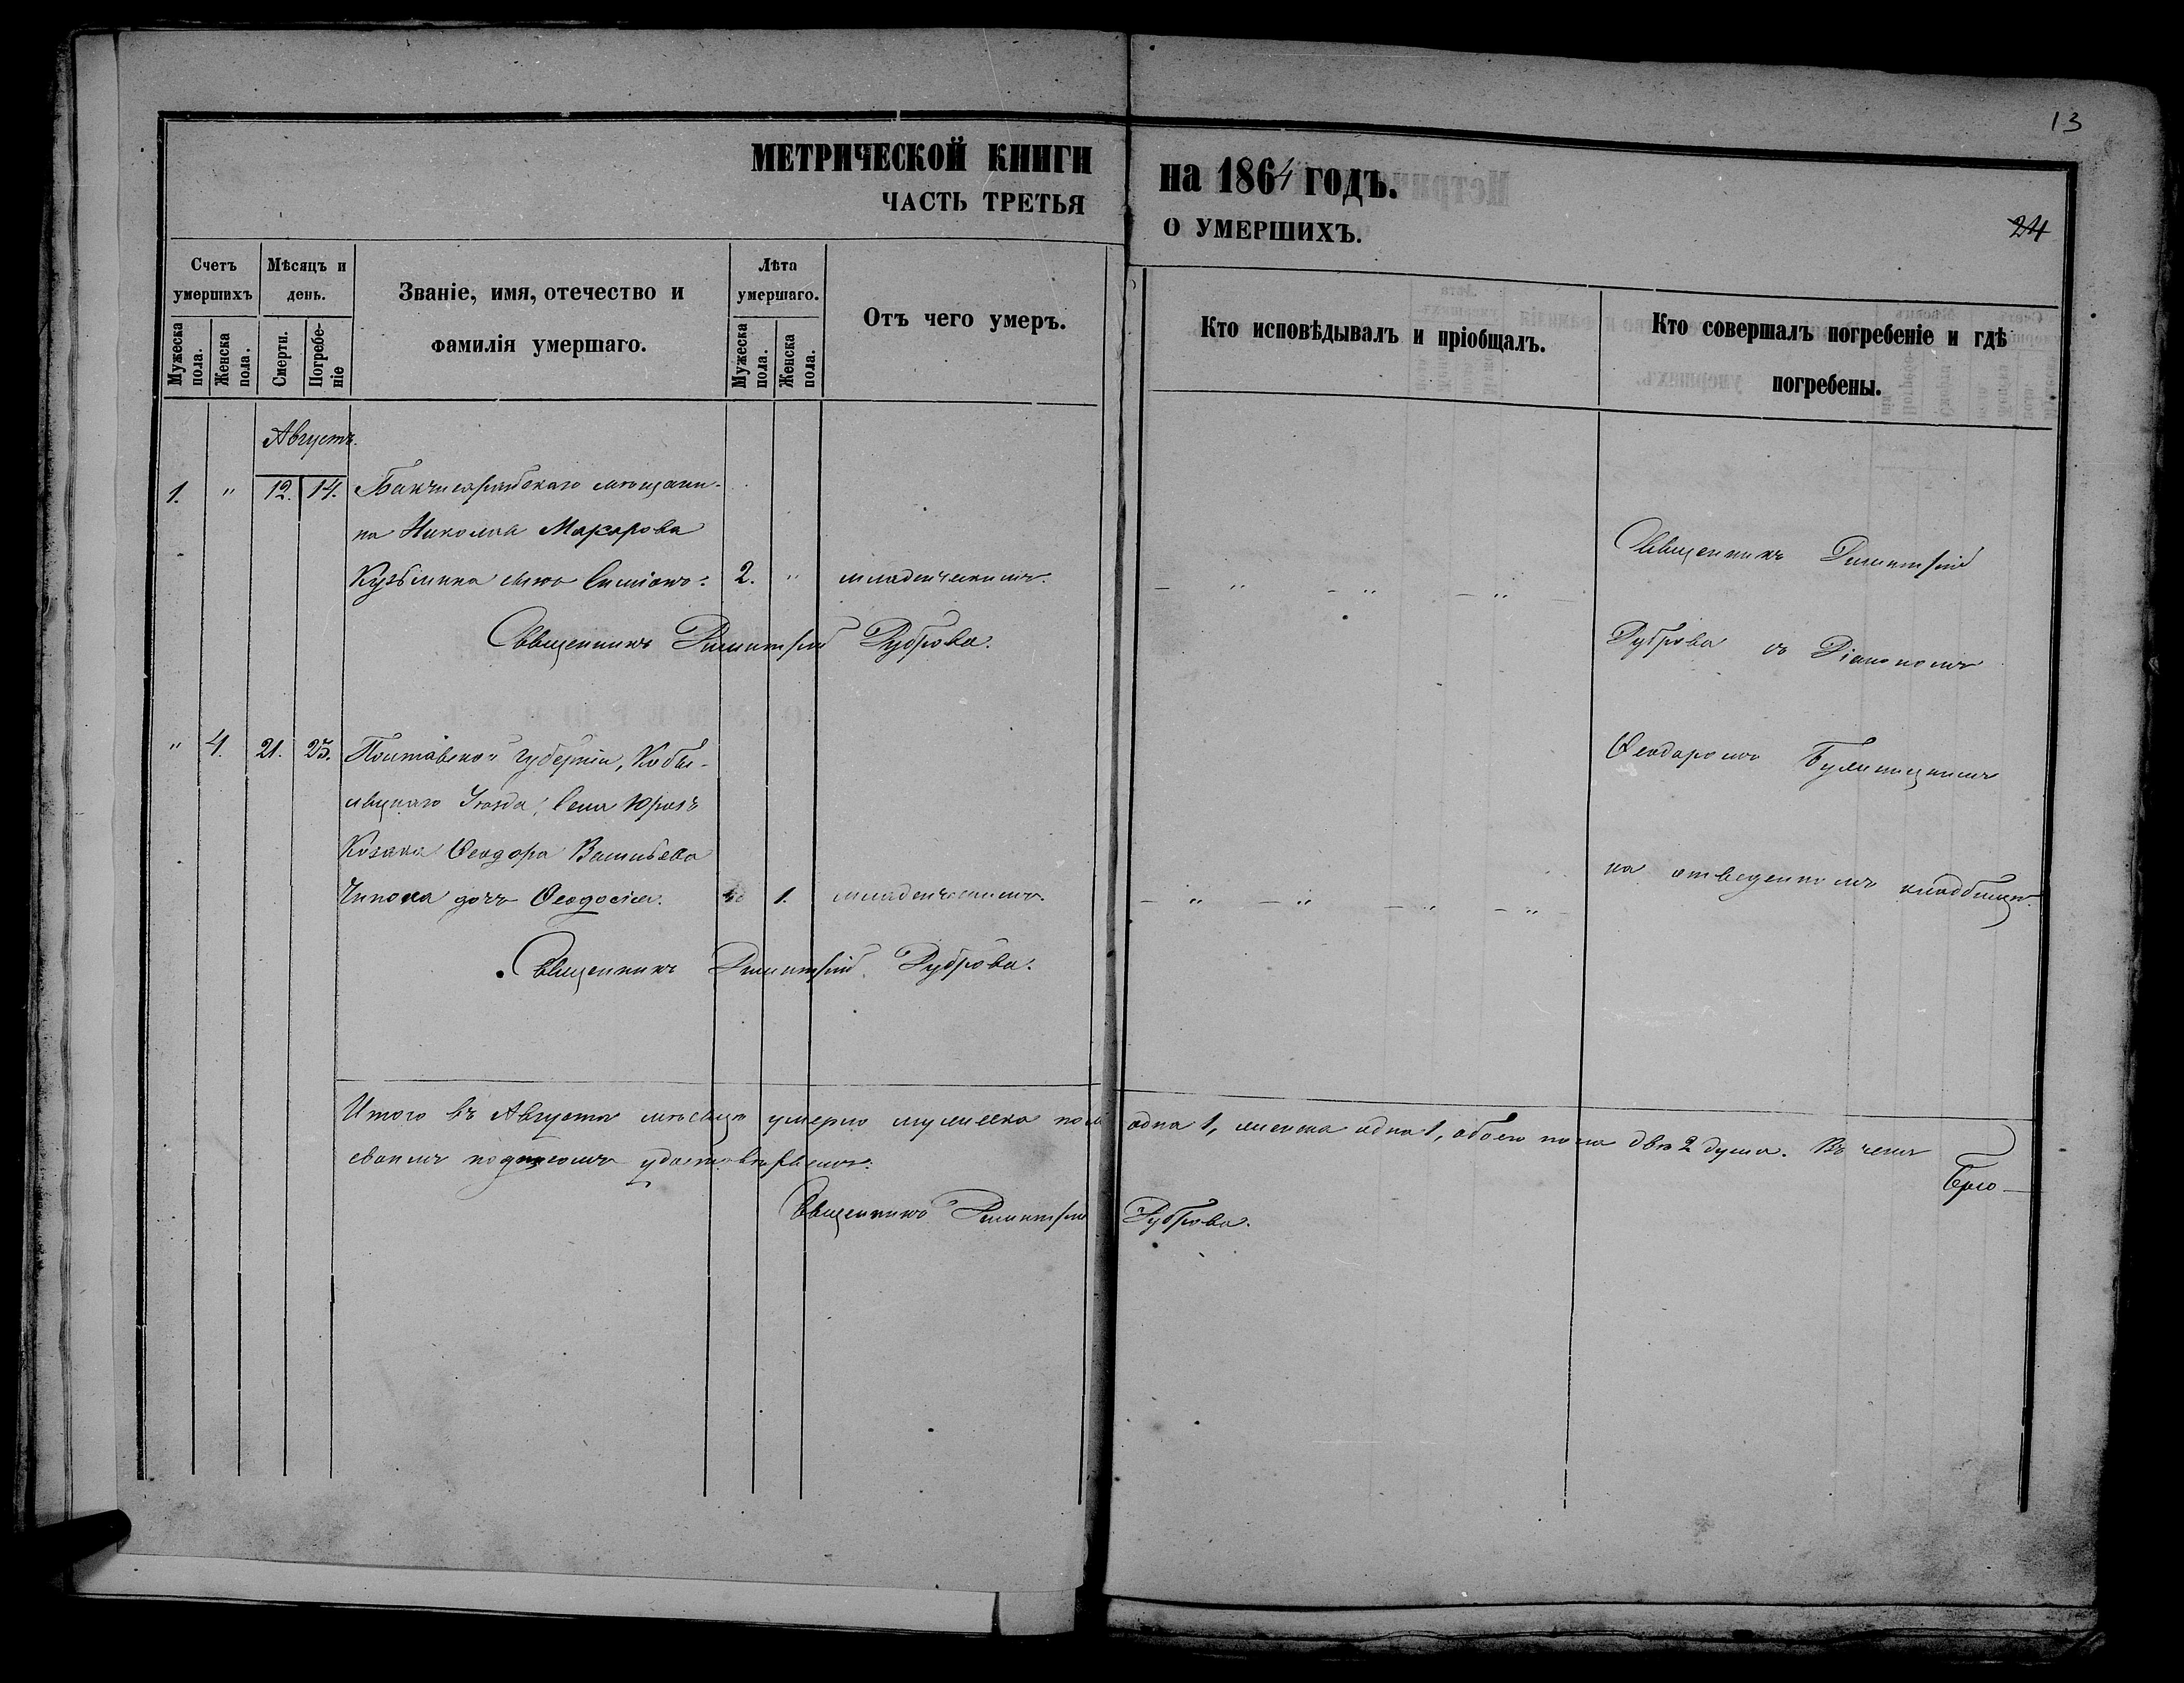 13
МЕТРИЧЕСКОЙ КНИГИ на 1864 ГОДЪ.
ЧАСТЬ ТРЕТЬЯ О УМЕРШИХЪ.
24
Счетъ умершихъ
Мужеска пола.
Женска пола.
Мѣсяцъ и день.
Смерти.
Погребеніе
Званіе, имя, отечество и фамилія умершаго.
Лѣта умершаго.
Мужеска пола.
Женска пола.
Отъ чего умеръ.
Кто исповѣдывалъ и пріобщалъ.
Кто совершалъ погребеніе и гдѣ погребены.
Августъ.
1. " 12. 14. Бахчисарайскаго мѣщани-
на Николая Макарова
Кузьмина сынъ Симіонъ. 2. " младенческимъ. - " - " - " -
Священникъ Димитрій Дуброва.
Священникъ Димитрій
Дуброва съ Діакономъ
Ѳеодоромъ
на отведенномъ кладбищѣ.
" 4. 21. 23. Полтавской Губерніи, Кобы-
ляцкаго Уѣзда, Села
Козака Ѳеодора Васильева
дочь Ѳеодосія. 1. младенческимъ. - " - " - " - " -
Священникъ Димитрій Дуброва.
Итого въ Августѣ мѣсяцѣ умерло мужеска пола одна 1, женска одна 1, обоего пола двѣ 2 души. Въ чемъ
своимъ подписомъ удостовѣряемъ:
Священникъ Димитрій Дуброва.